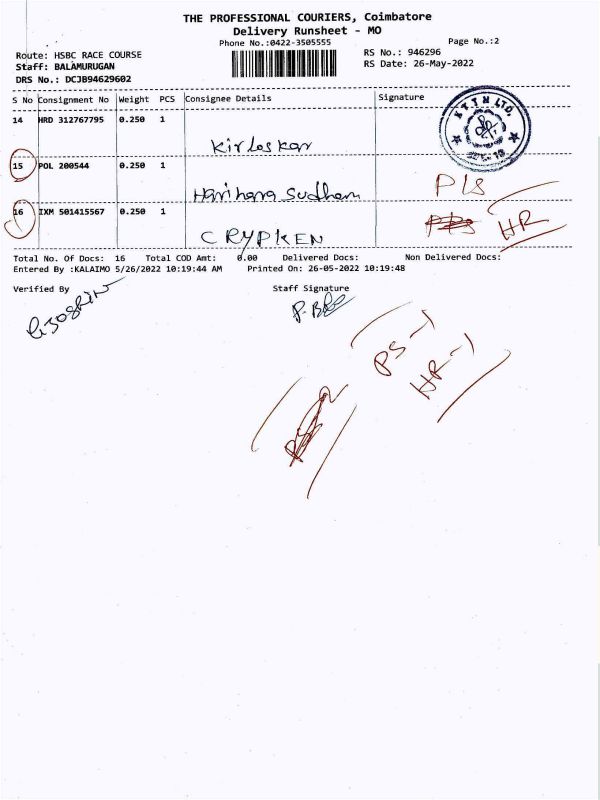 THE PROFESSIONAL COURIERS, Coimbatore
Delivery Runsheet - MO
Phone No.:0422-3505555
Page No.:2
Route: HSBC RACE COURSE
RS No.: 946296
Staff: BALAMURUGAN
RS Date: 26-May-2022
DRS No.: DCJB94629602
S No Consignment No Weight PCS Consignee Details Signature
14 HRD 312767795 0.250 1
Kirloskar
15 POL 200544 0.250 1
Harihara Sudham PLS
16 IXM 501415567 0.250 1
CRYPKEN HR
Total No. Of Docs: 16 Total COD Amt: 0.00 Delivered Docs: Non Delivered Docs:
Entered By :KALAIMO 5/26/2022 10:19:44 AM Printed On: 26-05-2022 10:19:48
Verified By Staff Signature
PS-1
HR-1